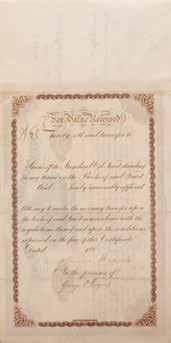 For Value Received
hereby sell and transfer to
Shares of the Standard Oil Trust standing
in my name on the Books of said Trust
And hereby irrevocably appoint
Attorney to make the necessary transfer upon
the books of said Trust in accordance with the
regulations thereof and upon the conditions
expressed on the face of this Certificate
Dated 188
In the presence of
George